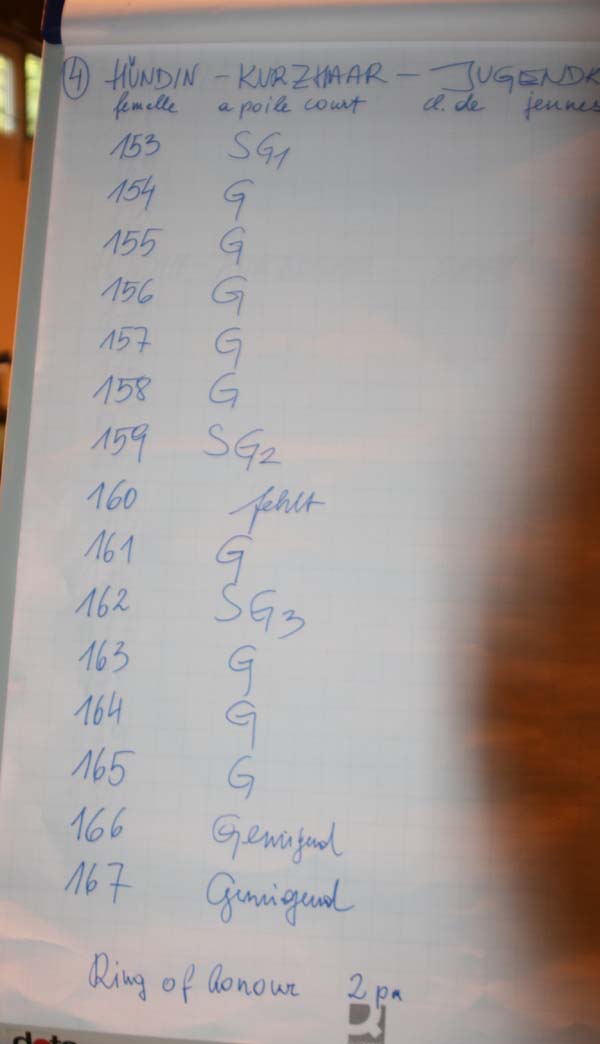 4 HÜNDIN - KURZHAAR - JUGENDK
femelle a poile court cl. de jeunes
153 SG1
154 G
155 G
156 G
157 G
158 G
159 SG2
160 fehlt
161 G
162 SG3
163 G
164 G
165 G
166 Genügend
167 Genügend
Ring of honour 2 pm